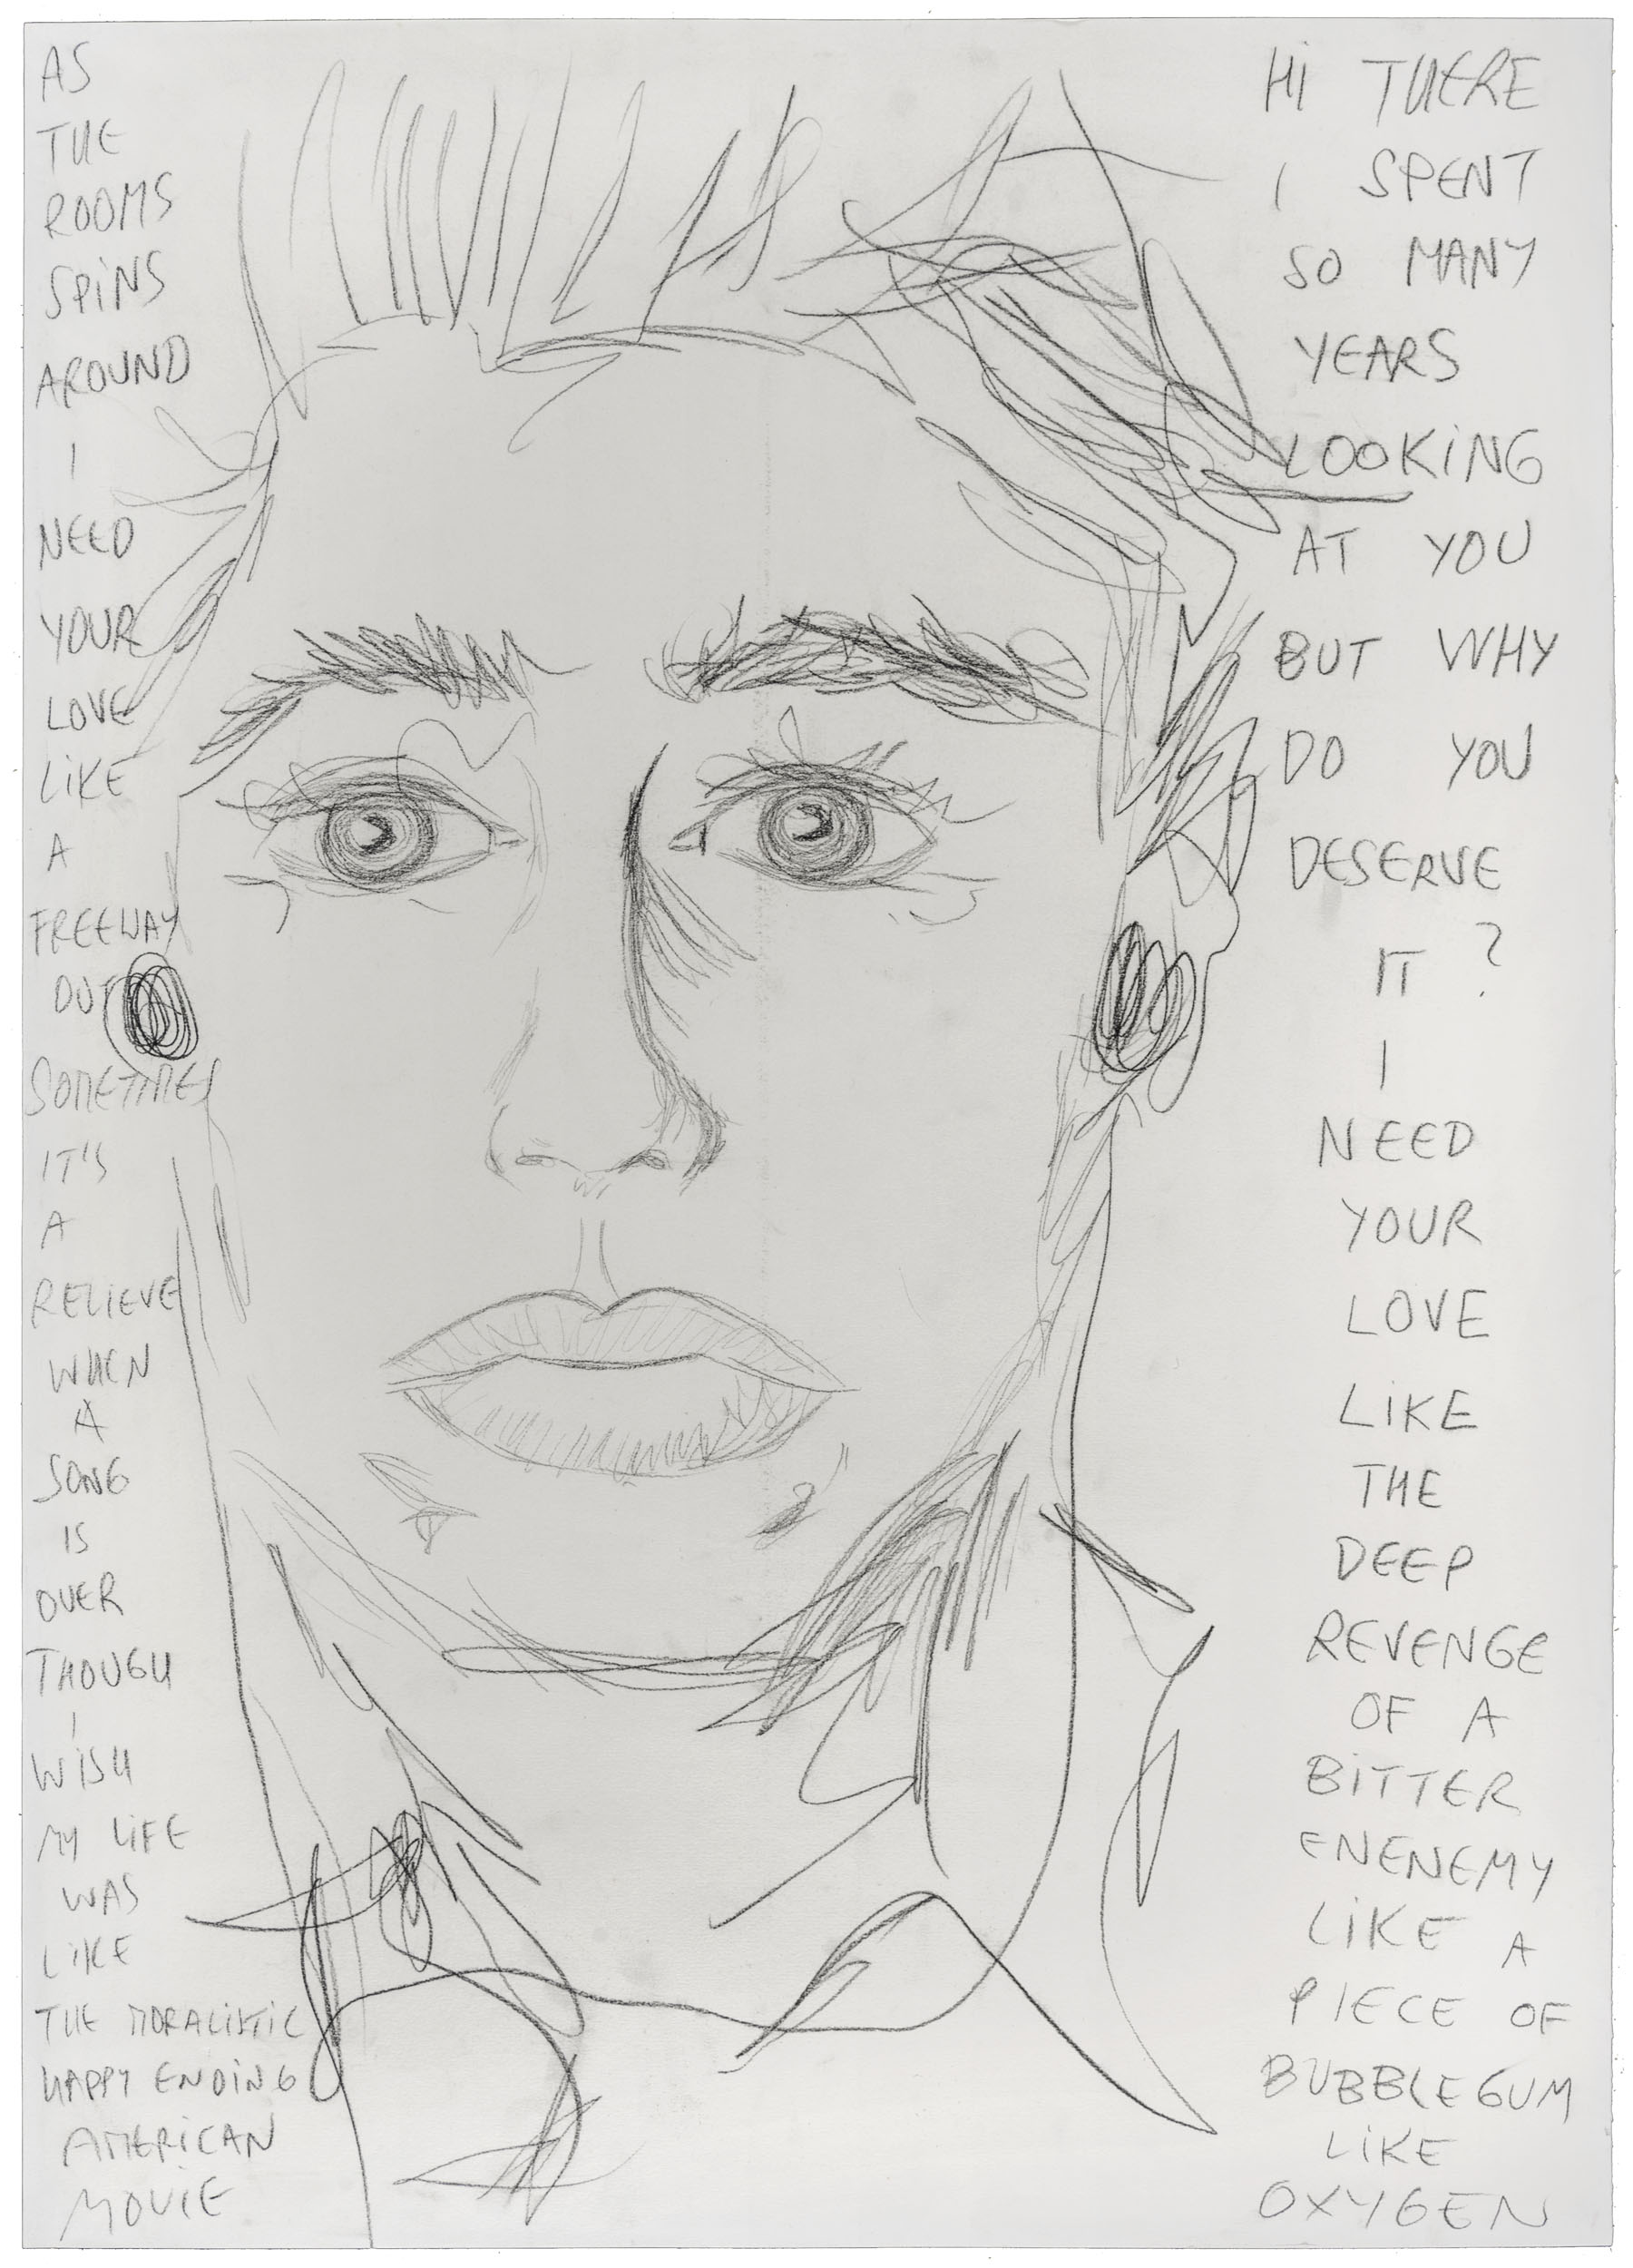 AS
THE
ROOMS
SPINS
AROUND
I
NEED
YOUR
LOVE
LIKE
A
FREEWAY
OUT
SOMETIMES
IT'S
A
RELIEVE
WHEN
A
SONG
IS
OVER
THOUGH
I
WISH
MY LIFE
WAS
LIKE
THE MORALISTIC
HAPPY ENDING
AMERICAN
MOVIE
HI THERE
I SPENT
SO MANY
YEARS
LOOKING
AT YOU
BUT WHY
DO YOU
DESERVE
IT ?
I
NEED
YOUR
LOVE
LIKE
THE
DEEP
REVENGE
OF A
BITTER
ENENEMY
LIKE A
PIECE OF
BUBBLEGUM
LIKE
OXYGEN